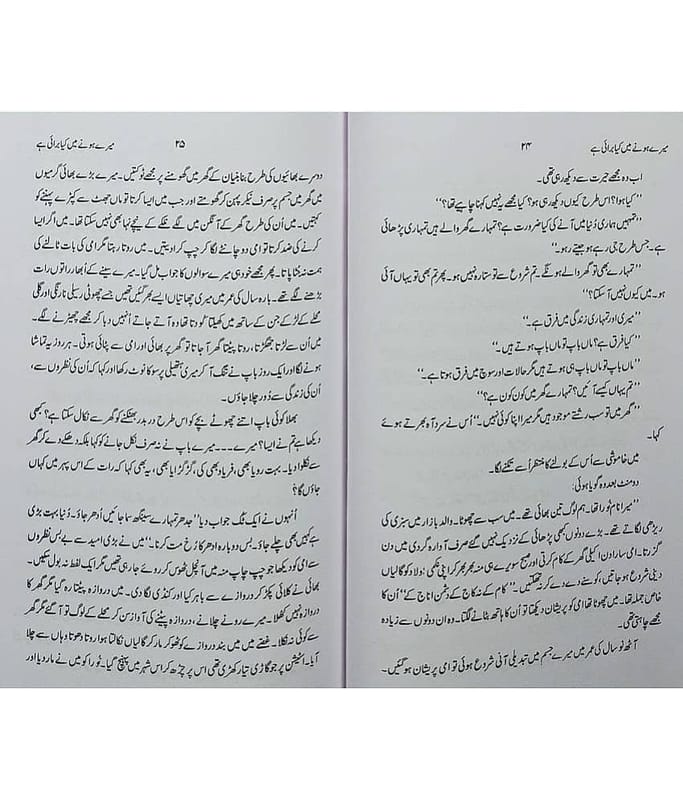 میرے ہونے میں کیا برائی ہے ۲۴
اب وہ مجھے حیرت سے دیکھ رہی تھی۔
”کیا ہوا؟ اس طرح کیوں دیکھ رہی ہو؟ کیا مجھے یہ نہیں کہنا چاہیے تھا؟“
”تمہیں ہماری دُنیا میں آنے کی کیا ضرورت ہے؟ تمہارے گھر والے ہیں تمہاری پڑھائی
ہے۔ جس طرح جی رہے ہو جیتے رہو۔“
”تمہارے بھی تو گھر والے ہونگے۔ تم شروع سے تو ستارہ نہیں ہو۔ پھر تم بھی تو یہاں آئی
ہو۔ میں کیوں نہیں آ سکتا؟“
”میری اور تمہاری زندگی میں فرق ہے۔“
”کیا فرق ہے؟ ماں باپ تو ماں باپ ہوتے ہیں۔“
”ماں باپ تو ماں باپ ہی ہوتے ہیں مگر حالات اور سوچ میں فرق ہوتا ہے۔“
”تم یہاں کیسے آئیں؟ تمہارے گھر میں کون کون ہے؟“
”گھر میں تو سب رشتے موجود ہیں مگر میرا اپنا کوئی نہیں۔“ اُس نے سرد آہ بھرتے ہوئے
کہا۔
میں خاموشی اُس کے بولنے کا منتظر اُسے تکنے لگا۔
دو منٹ بعد وہ گویا ہوئی:
”میرا نام نُورا تھا۔ ہم لوگ تین بھائی تھے۔ میں سب سے چھوٹا۔ والد بازار میں سبزی کی
ریڑھی لگاتے تھے۔ بڑے دونوں کبھی پڑھائی کے نزدیک نہیں گئے صرف آوارہ گردی میں دن
گزرتا۔ امی سارا دن اکیلی گھر کے کام کرتی اور صبح سویرے ہی منہ بھر بھر کر اپنی نکمی ، ولا دکو گالیاں
دینی شروع ہو جاتیں، کوسنے دے دے کر نہ تھکتیں۔ ”کام کے نہ کاج کے دشمن اناج کے“ اُن کا
خاص جملہ تھا۔ میں چھوٹا تھا امی کو پریشان دیکھتا تو اُن کا ہاتھ بٹانے لگتا۔ وہ ان دونوں سے زیادہ
مجھے چاہتی تھی۔
آٹھ نو سال کی عمر میں میرے جسم میں تبدیلی آنی شروع ہوئی تو امی پریشان ہو گئیں۔
میرے ہونے میں کیا برائی ہے ۲۵
دوسرے بھائیوں کی طرح بنا بنیان کے گھر میں گھومنے پر مجھے ٹوکتیں۔ میرے بڑے بھائی گرمیوں
میں گھر میں جسم پر صرف نیکر پہن کر گھومتے اور جب میں ایسا کرتا تو ماں جھٹ سے کپڑے پہننے کو
کہتیں۔ میں اُن کی طرح گھر کے آنگن میں لگے نلکے کے نیچے نہا بھی نہیں سکتا تھا۔ میں اگر ایسا
کرنے کی ضد کرتا تو امی دو چانٹے لگا کر چپ کرا دیتیں۔ میں روتا رہتا مگر امی کی بات ٹالنے کی
ہمت نہ جٹا پاتا۔ پھر مجھے خود ہی میرے سوالوں کا جواب مل گیا۔ میرے سینے کے اُبھار راتوں رات
بڑھنے لگے تھے۔ بارہ سال کی عمر میں میری چھاتیاں ایسے بھر گئیں تھیں جسے چھوٹی ریلی نارنگی اور گلی
محلے کے لڑکے جن کے ساتھ میں کھیلتا کُودتا تھا وہ آتے جاتے اُنہیں دبا کر مجھے چھیڑنے لگے۔
میں اُن سے لڑتا جھگڑتا، روتا پیٹتا گھر آ جاتا تو گھر پر بھائی اور امی سے پٹائی ہوتی۔ ہر روز یہ تماشا
ہونے لگا اور ایک روز باپ نے تنگ آ کر میری ہتھیلی پر سو کا نوٹ رکھا اور کہا کہ اُن کی نظروں سے،
اُن کی زندگی سے دُور چلا جاؤں۔
بھلا کوئی باپ اتنے چھوٹے بچے کو اس طرح در بدر بھٹکنے کو گھر سے نکال سکتا ہے؟ کبھی
دیکھا ہے تم نے ایسا؟ میرے۔۔۔۔ میرے باپ نے نہ صرف نکل جانے کو کہا بلکہ دھکے دے کر گھر
سے نکلوا دیا۔ بہت رویا بھی، فریاد بھی کی، گڑگڑایا بھی، یہ بھی کہا کہ رات کے اس پہر میں کہاں
جاؤں گا؟
اُنہوں نے ایک ٹُک جواب دیا ”جدھر تمہارے سینگھ سما جائیں اُدھر جاؤ۔ دُنیا بہت بڑی
ہے کہیں بھی چلے جاؤ۔ بس دوبارہ ادھر کا رُخ مت کرنا۔“ میں نے بڑی امید سے بے بس نظروں
سے امی کو دیکھا جو چپ چاپ منہ میں آنچل ٹھوس کر روئے جا رہی تھیں مگر ایک لفظ نہ بول سکیں۔
بھائی نے کلائی پکڑ کر دروازے سے باہر کیا اور کنڈی لگا دی۔ میں دروازہ پیٹتا رہ گیا مگر گھر کا
دروازہ نہیں کھلا۔ میرے رونے چلانے، دروازہ پیٹنے کی آواز سن کر محلے کے لوگ تو آ گئے مگر گھر
سے کوئی نہ نکلا۔ غصے میں میں بند دروازے کو ٹھوکر مار کر گالیاں نکالتا ہوا روتا دھوتا وہاں سے چلا
آیا۔ اسٹیشن پر جو گاڑی تیار کھڑی تھی اس پر چڑھ کر اس شہر میں پہنچ گیا۔ نُورا کو میں نے مار دیا اور